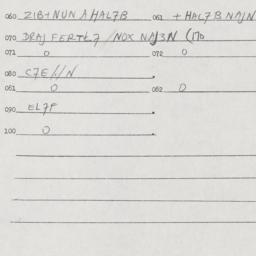 060 ZIB+NUN A HAL7B 061 + HAL7B NAJN
070 DRAJ FERTL7 /NOX NAJ3N (170
071 0 072 0
080 C7E//N
081 0 082 0
090 EL7F
100 0